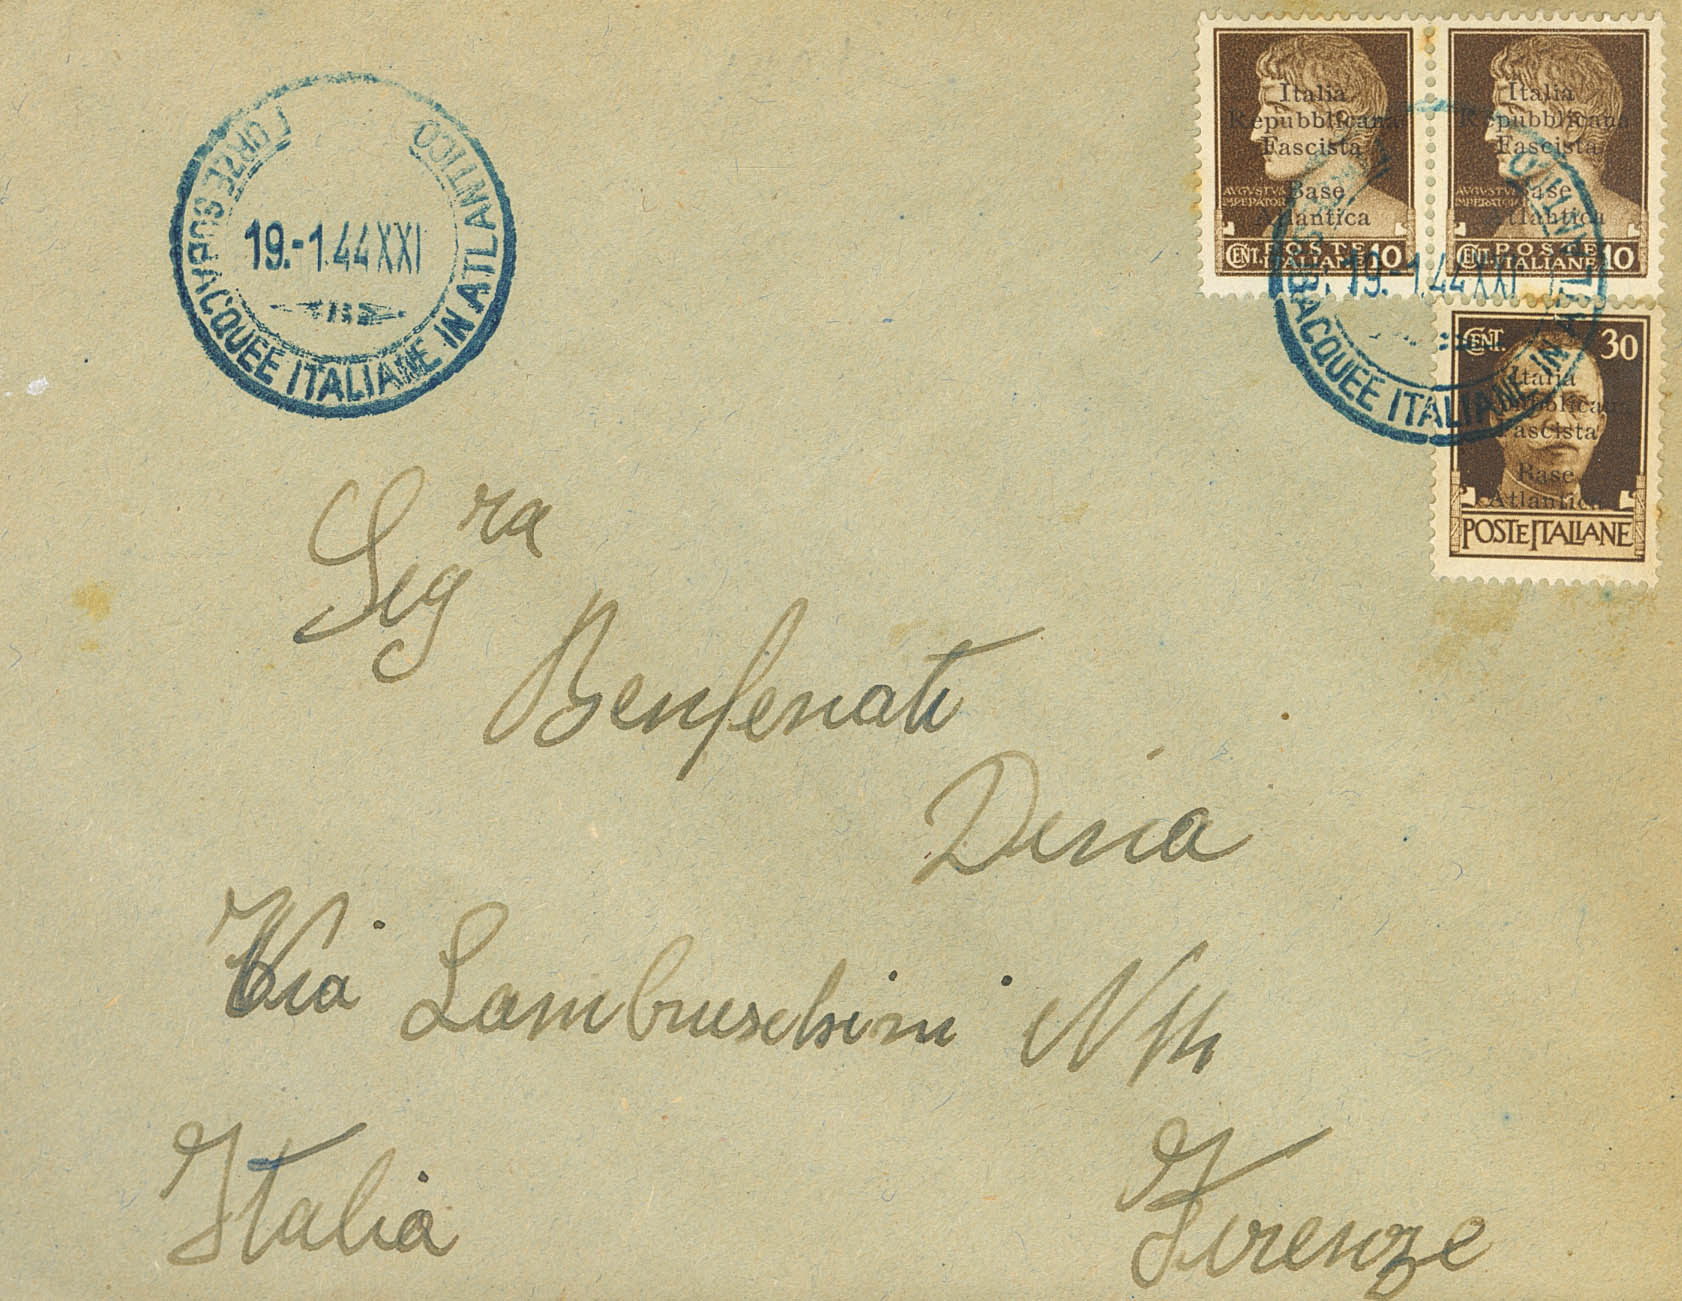 FORZE SUBACQUEE ITALIANE IN ATLANTICO
19.-1.44 XXI
Italia
Repubblicana
Fascista
Base
Atlantica
AVGVSTVS
IMPERATOR
CENT. POSTE
ITALIANE 10
Italia
Repubblicana
Fascista
Base
Atlantica
AVGVSTVS
IMPERATOR
CENT. POSTE
ITALIANE 10
ACQUEE ITALIANE IN ATLANTICO
19.-1.44 XXI
CENT. 30
Italia
Repubblicana
Fascista
Base
Atlantica
POSTE ITALIANE
Sigra
Benfenati
Dina
Via Lambruschini N
Italia Firenze